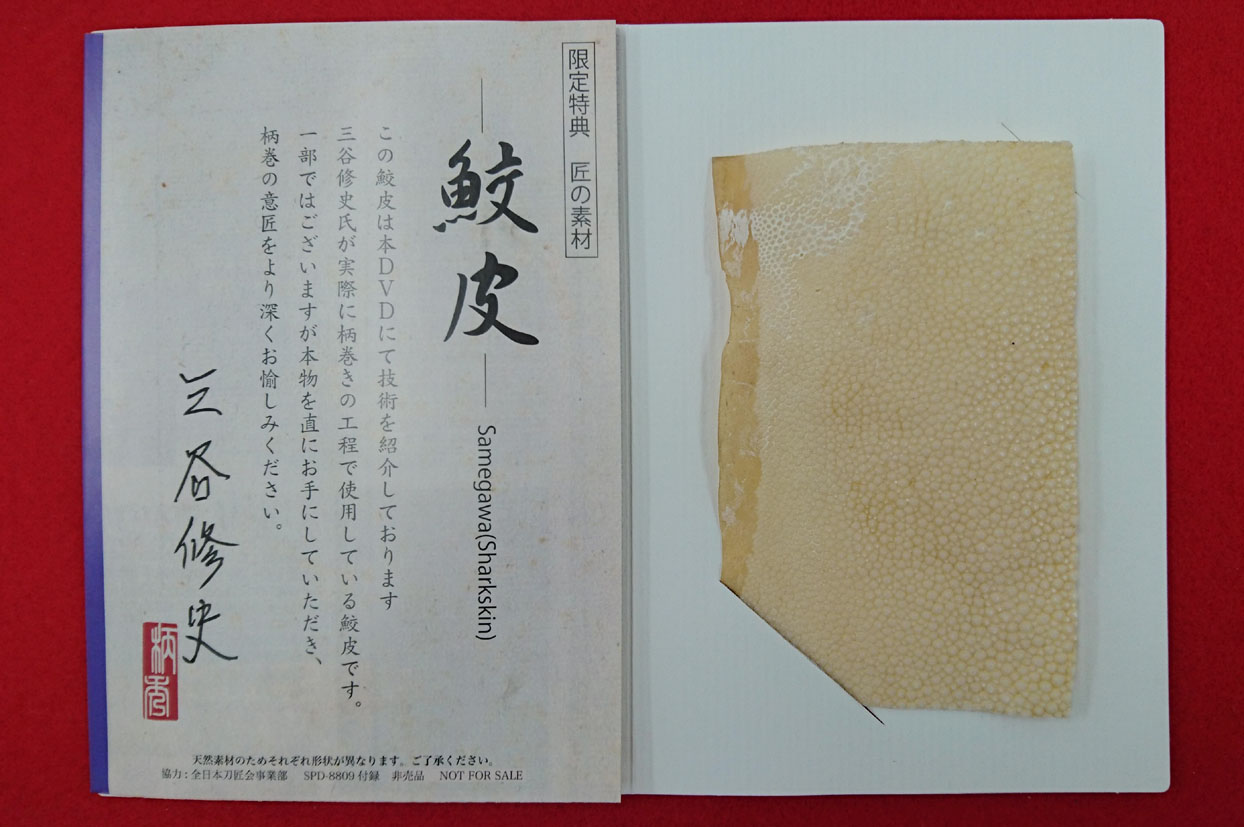 限定特典 匠の素材
鮫皮
Samegawa(Sharkskin)
この鮫皮は本DVDにて技術を紹介しております
三谷修史氏が実際に柄巻きの工程で使用している鮫皮です。
一部ではございますが本物を直にお手にしていただき、
柄巻の意匠をより深くお愉しみください。
三谷修史
天然素材のためそれぞれ形状が異なります。ご了承ください。
協力:全日本刀匠会事業部 SPD-8809付録 非売品 NOT FOR SALE